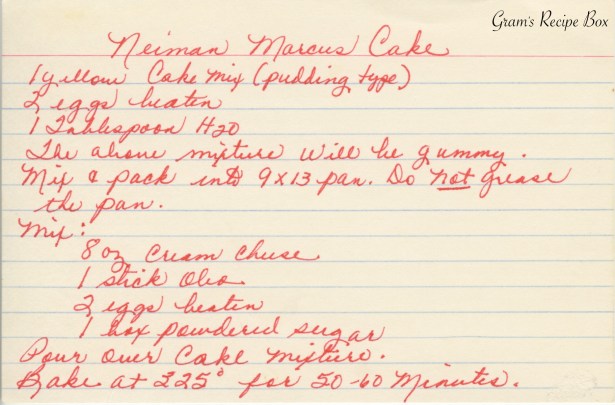 Gram's Recipe Box
Neiman Marcus Cake
1 yellow Cake Mix (pudding type)
2 eggs beaten
1 Tablespoon H20
The above mixture will be gummy.
Mix & pack into 9x13 pan. Do not grease
the pan.
Mix:
8 oz cream cheese
1 stick Oleo
2 eggs beaten
1 box powdered sugar
Pour over Cake Mixture.
Bake at 325° for 50-60 Minutes.